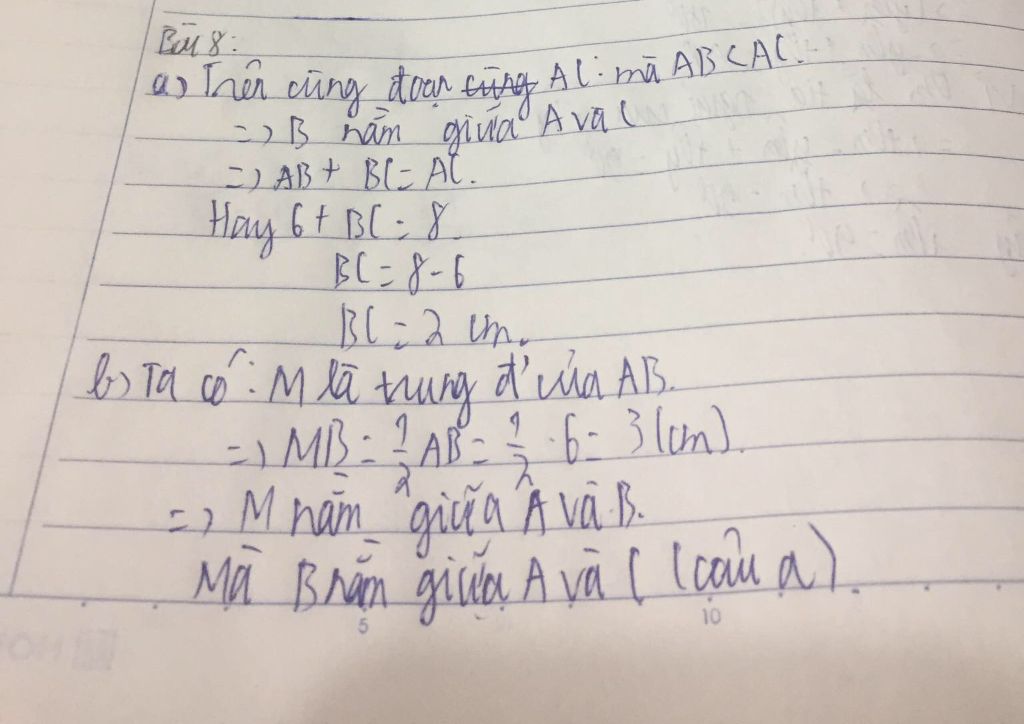 Bài 8:
a) Trên cùng đoạn cùng AC: mà AB < AC.
=> B nằm giữa A và C
=> AB + BC = AC.
Hay 6 + BC = 8
BC = 8 - 6
BC = 2 cm.
b) Ta có: M là trung đ' của AB.
=> MB = 1/2 AB = 1/2 · 6 = 3 (cm).
=> M nằm giữa A và B.
Mà B nằm giữa A và C (câu a).
5 10